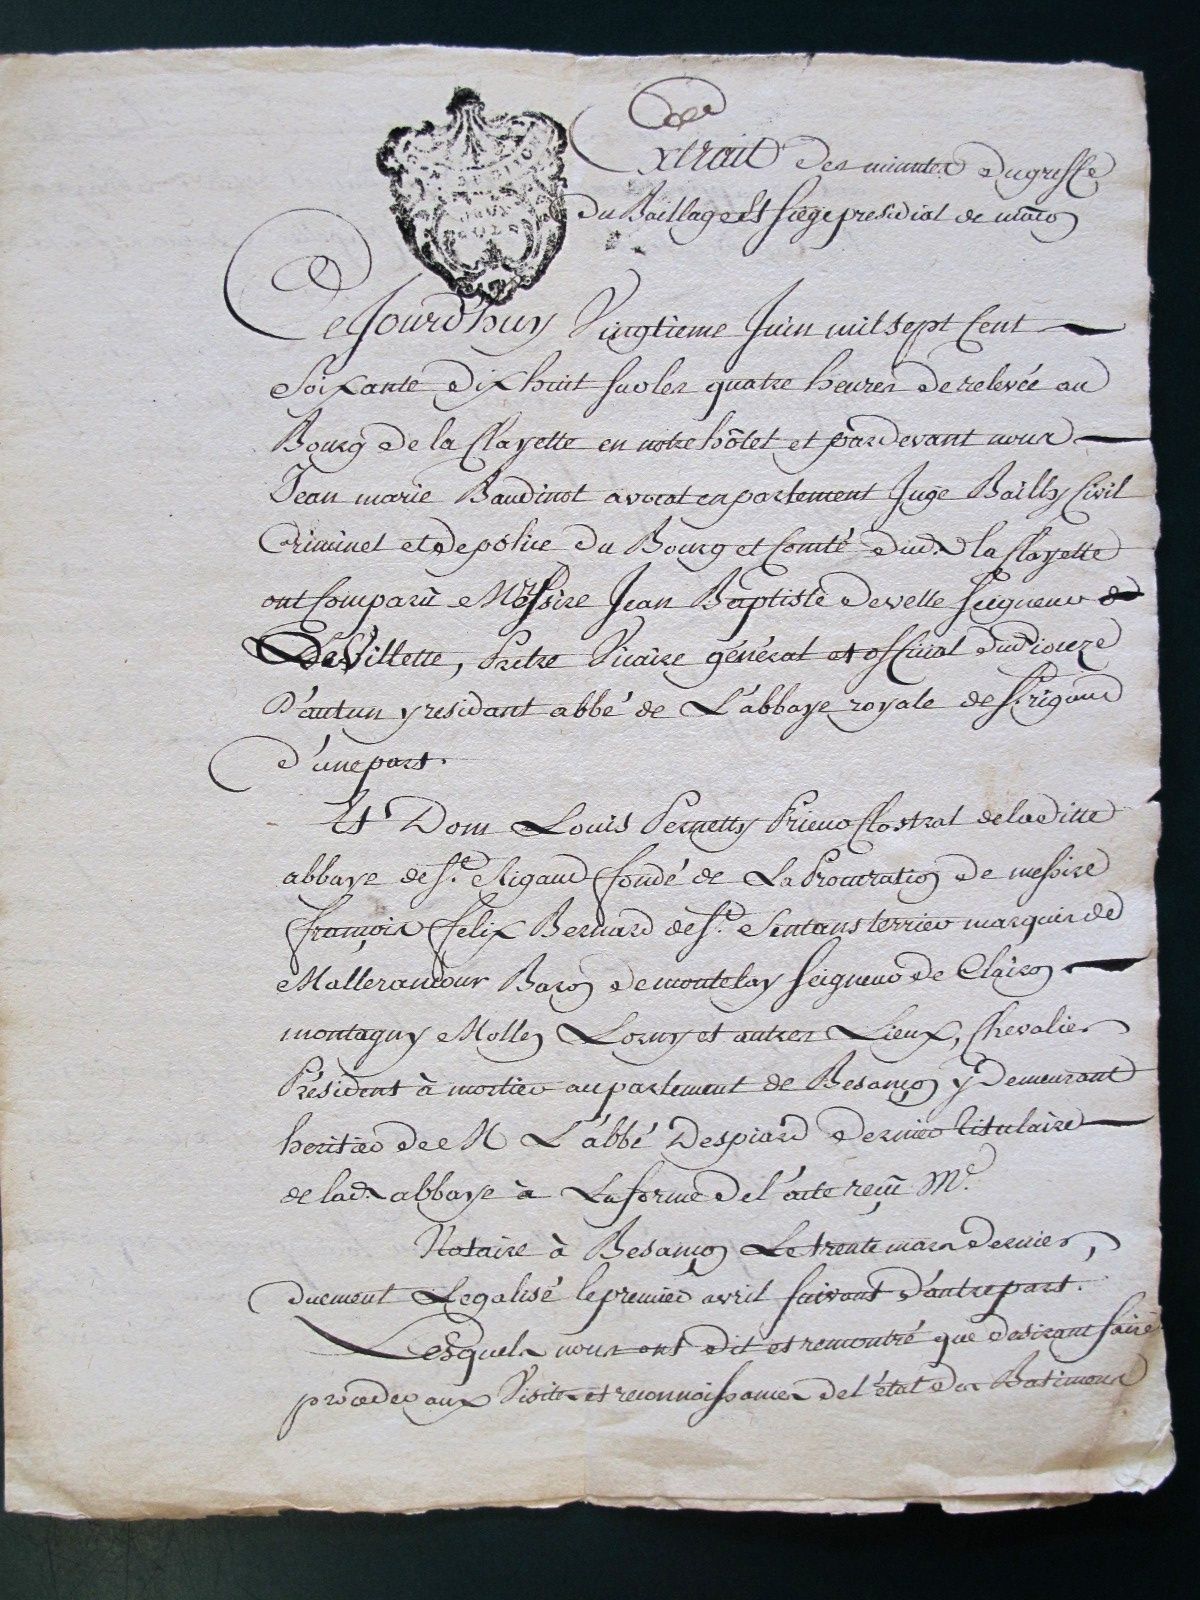 Extrait des minutes du greffe
du Baillage et siege presidial de mâcon
Cejourd'huy Vingtieme Juin mil sept Cent
Soixante dix huit sur les quatre heures de relevée au
Bourg de la Clayette en notre hôtel et pardevant nous
Jean marie Baudinot avocat en parlement Juge Bailly Civil
Criminel et de police du Bourg et Comté dud. la Clayette
ont Comparû Messire Jean Baptiste develle seigneur de
De Villette, Prêtre Vicaire général et official du diocèze
D'autun y residant abbé de L'abbaye royale de St. rigaud
d'une part.
Et Dom Louis Pernetty Prieur Clostral de la ditte
abbaye de St. Rigaud fondé de La Procuration de messire
françois felix Bernard de Ste. Sentans terrier marquis de
Mailleroncour Baron de montelay seigneur de Clairon
montagny Molley Lorny et autres Lieux, Chevalier
Président à mortier au parlement de Besançon y Demeurant
heritier de M L'abbé Despiard dernier titulaire
de lad. abbaye à La forme de l'acte reçu Me.
Notaire à Besançon Le trente mars dernier,
duement Legalisé le premier avril suivant d'autre part.
Lesquels nous ont dit et remontré que desirant faire
proceder aux Visites et reconnoissances de l'état des Batimens